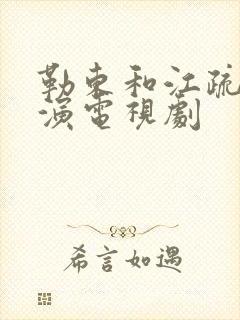 勒東和江疏
演電視劇
希言如遇